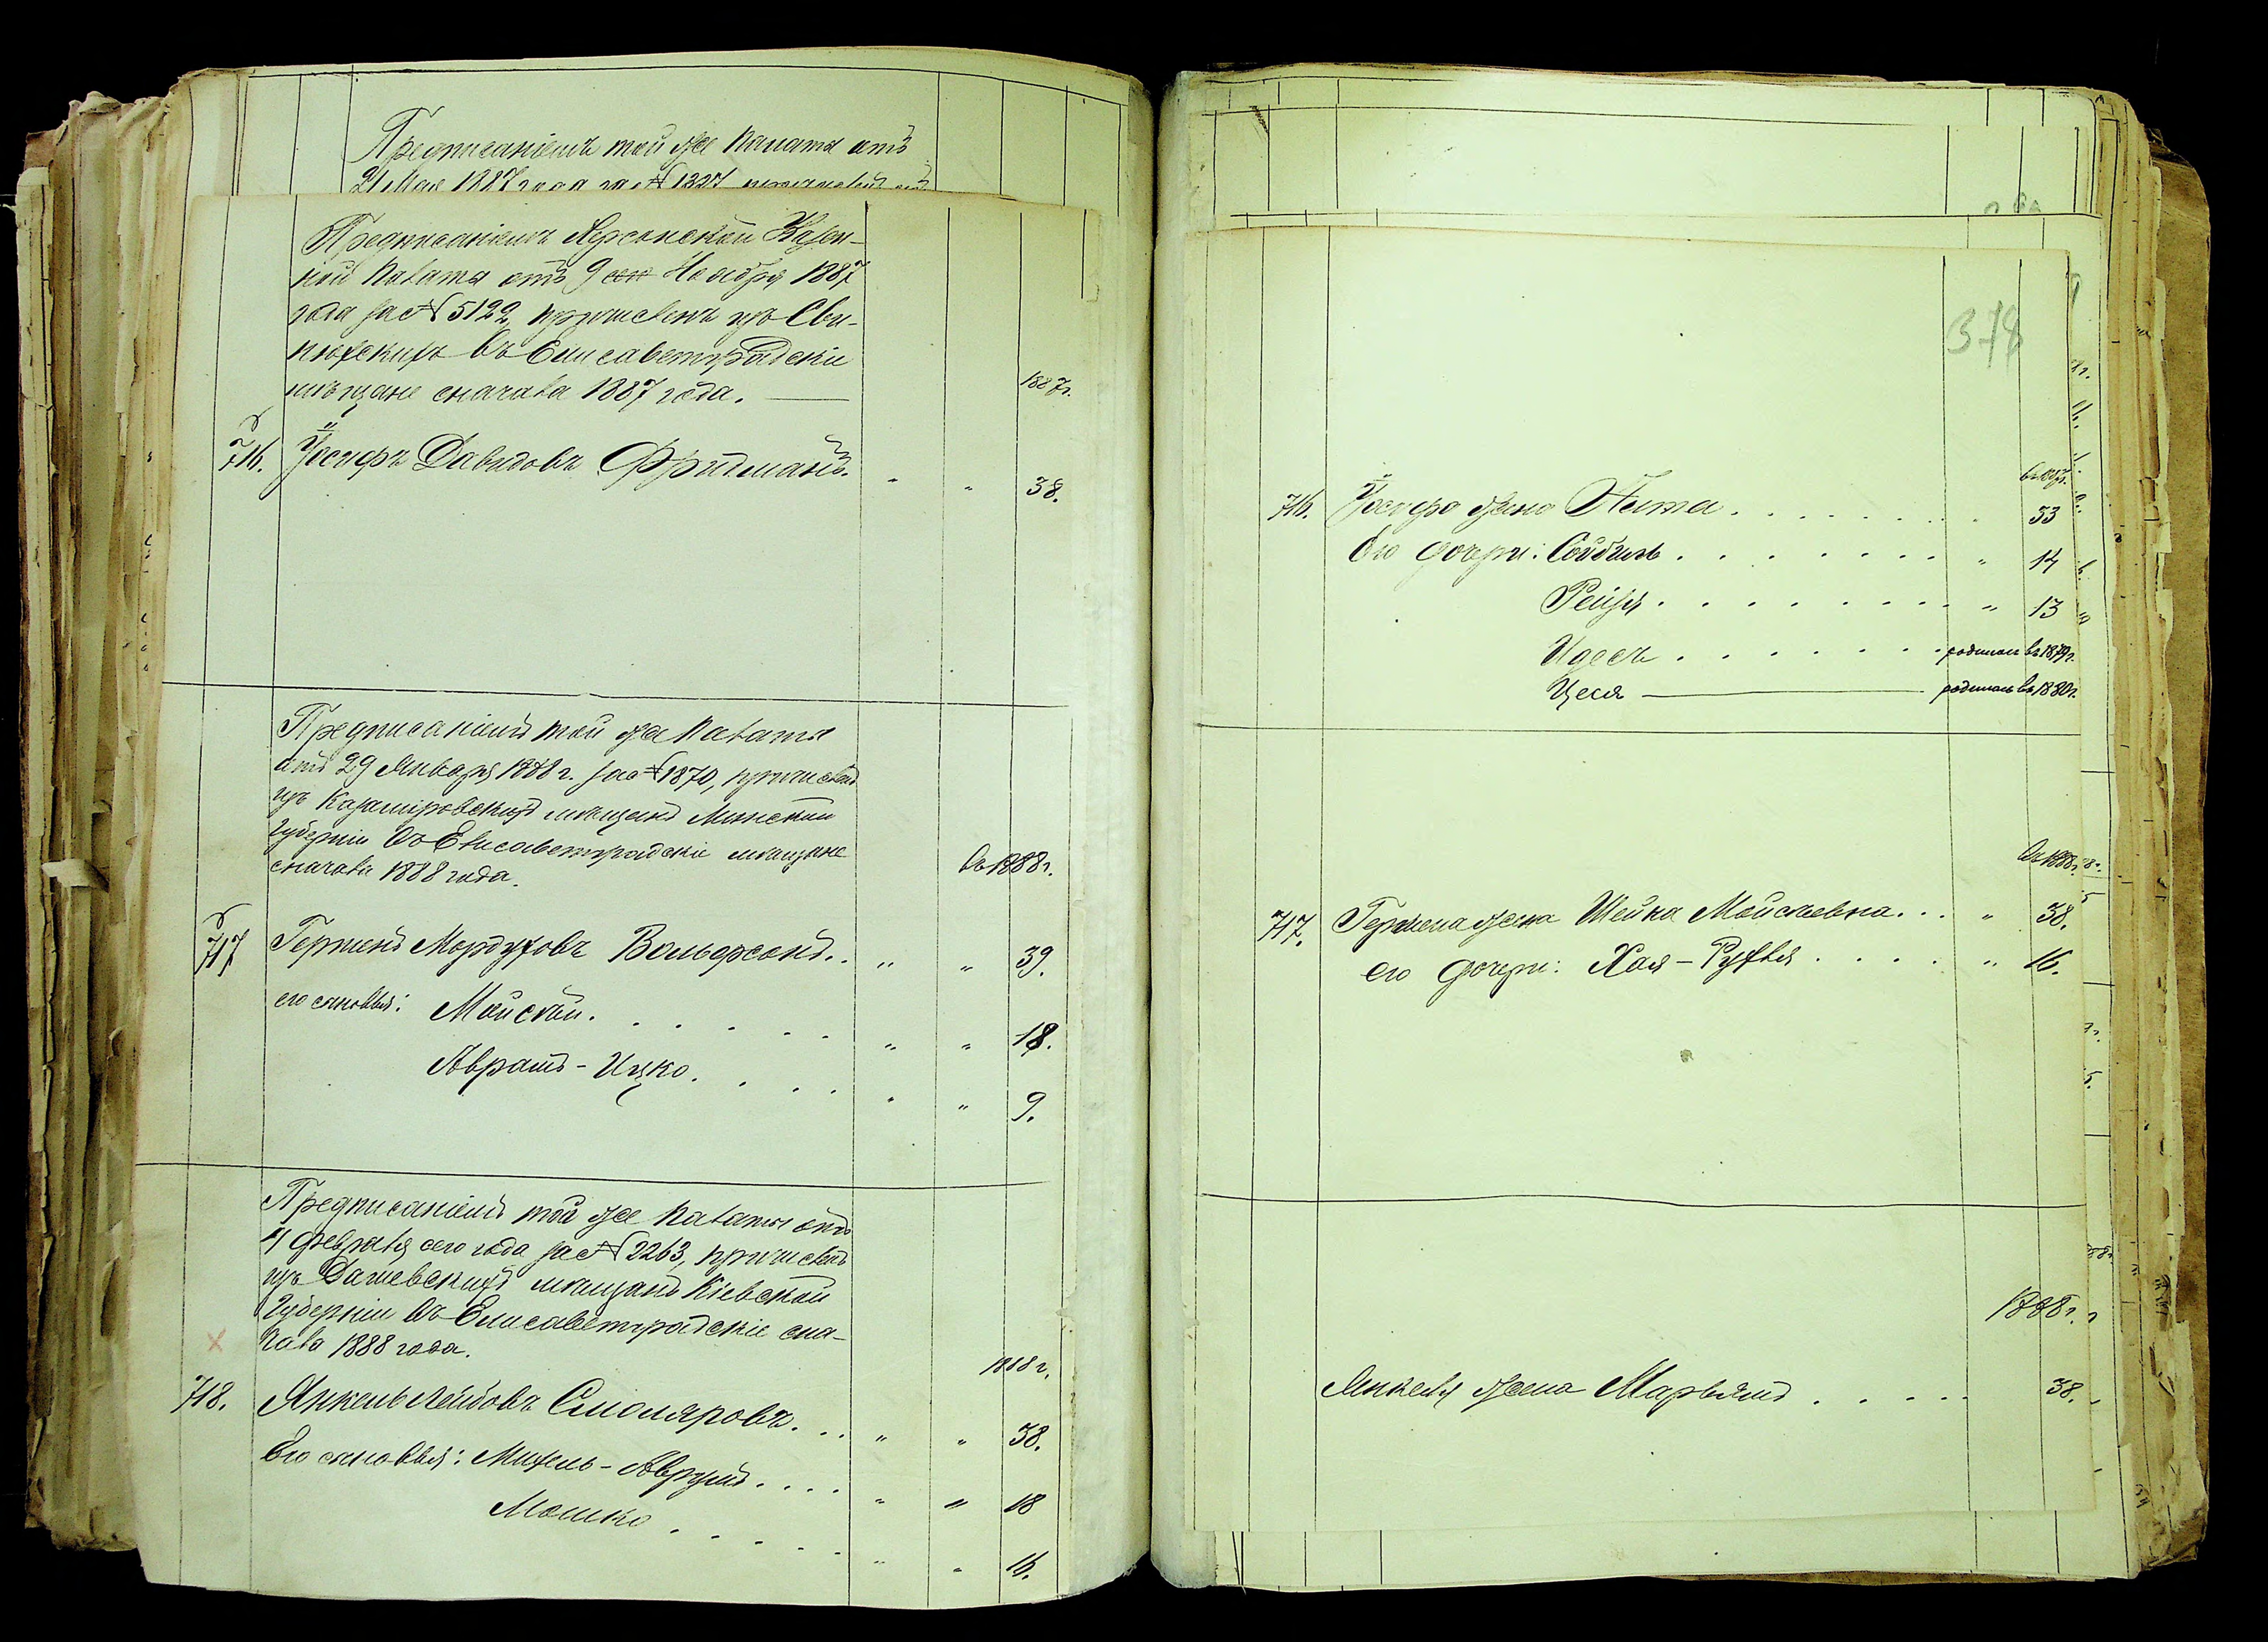 Предписаніемъ той же Палаты отъ
21 Мая 1887 года за № 1327
Предписаніемъ Херсонской Казен-
ной Палаты отъ 9 Ноября 1887
года за № 5122, причисленъ изъ Сви-
нюхскихъ въ Елисаветградскіе
мѣщане сначала 1887 года.
1887г.
716. Іосифъ Давидовъ Фридманъ. " " 38.
Предписаніемъ той же Палаты
отъ 29 Января 1888 г. за № 1870, причислен
изъ Казимировскихъ мѣщанъ Минской
Губерніи въ Елисаветградскіе мѣщане
сначала 1888 года.
въ 1888г.
717 Гершенъ Мордуховъ Вольфсонъ. . " " 39.
его сыновья: Мойсей. . . . . . " " 18.
Аврамъ-Ицко. . . . " " 9.
Предписаніемъ той же Палаты отъ
4 Февраля сего года за № 2263, причислен
изъ Дашевскихъ мѣщанъ Кіевской
Губерніи въ Елисаветградскіе сна-
чала 1888 года.
1888 г.
718. Янкель Лейбовъ Смоляровъ. . . " " 38.
Его сыновья: Михель-Аврумъ. . . . " " 18
Мошко . . . . . " " 16.
378
въ 1887г.
716. Іосифа жена Нета. . . . . . . . 33
Его дочери: Сойбиль . . . . . . . " 14
Рейзя . . . . . . . . " 13
Идесъ . . . . . . . родилась въ 1879г.
Цеся — родилась въ 1880г.
въ 1888г.
717. Гершена жена Шейна Мойсеевна. . . " 38.
его дочери: Хая-Рухля . . . . . " 16.
1888г.
Янкеля жена Марьямъ . . . . . 38.